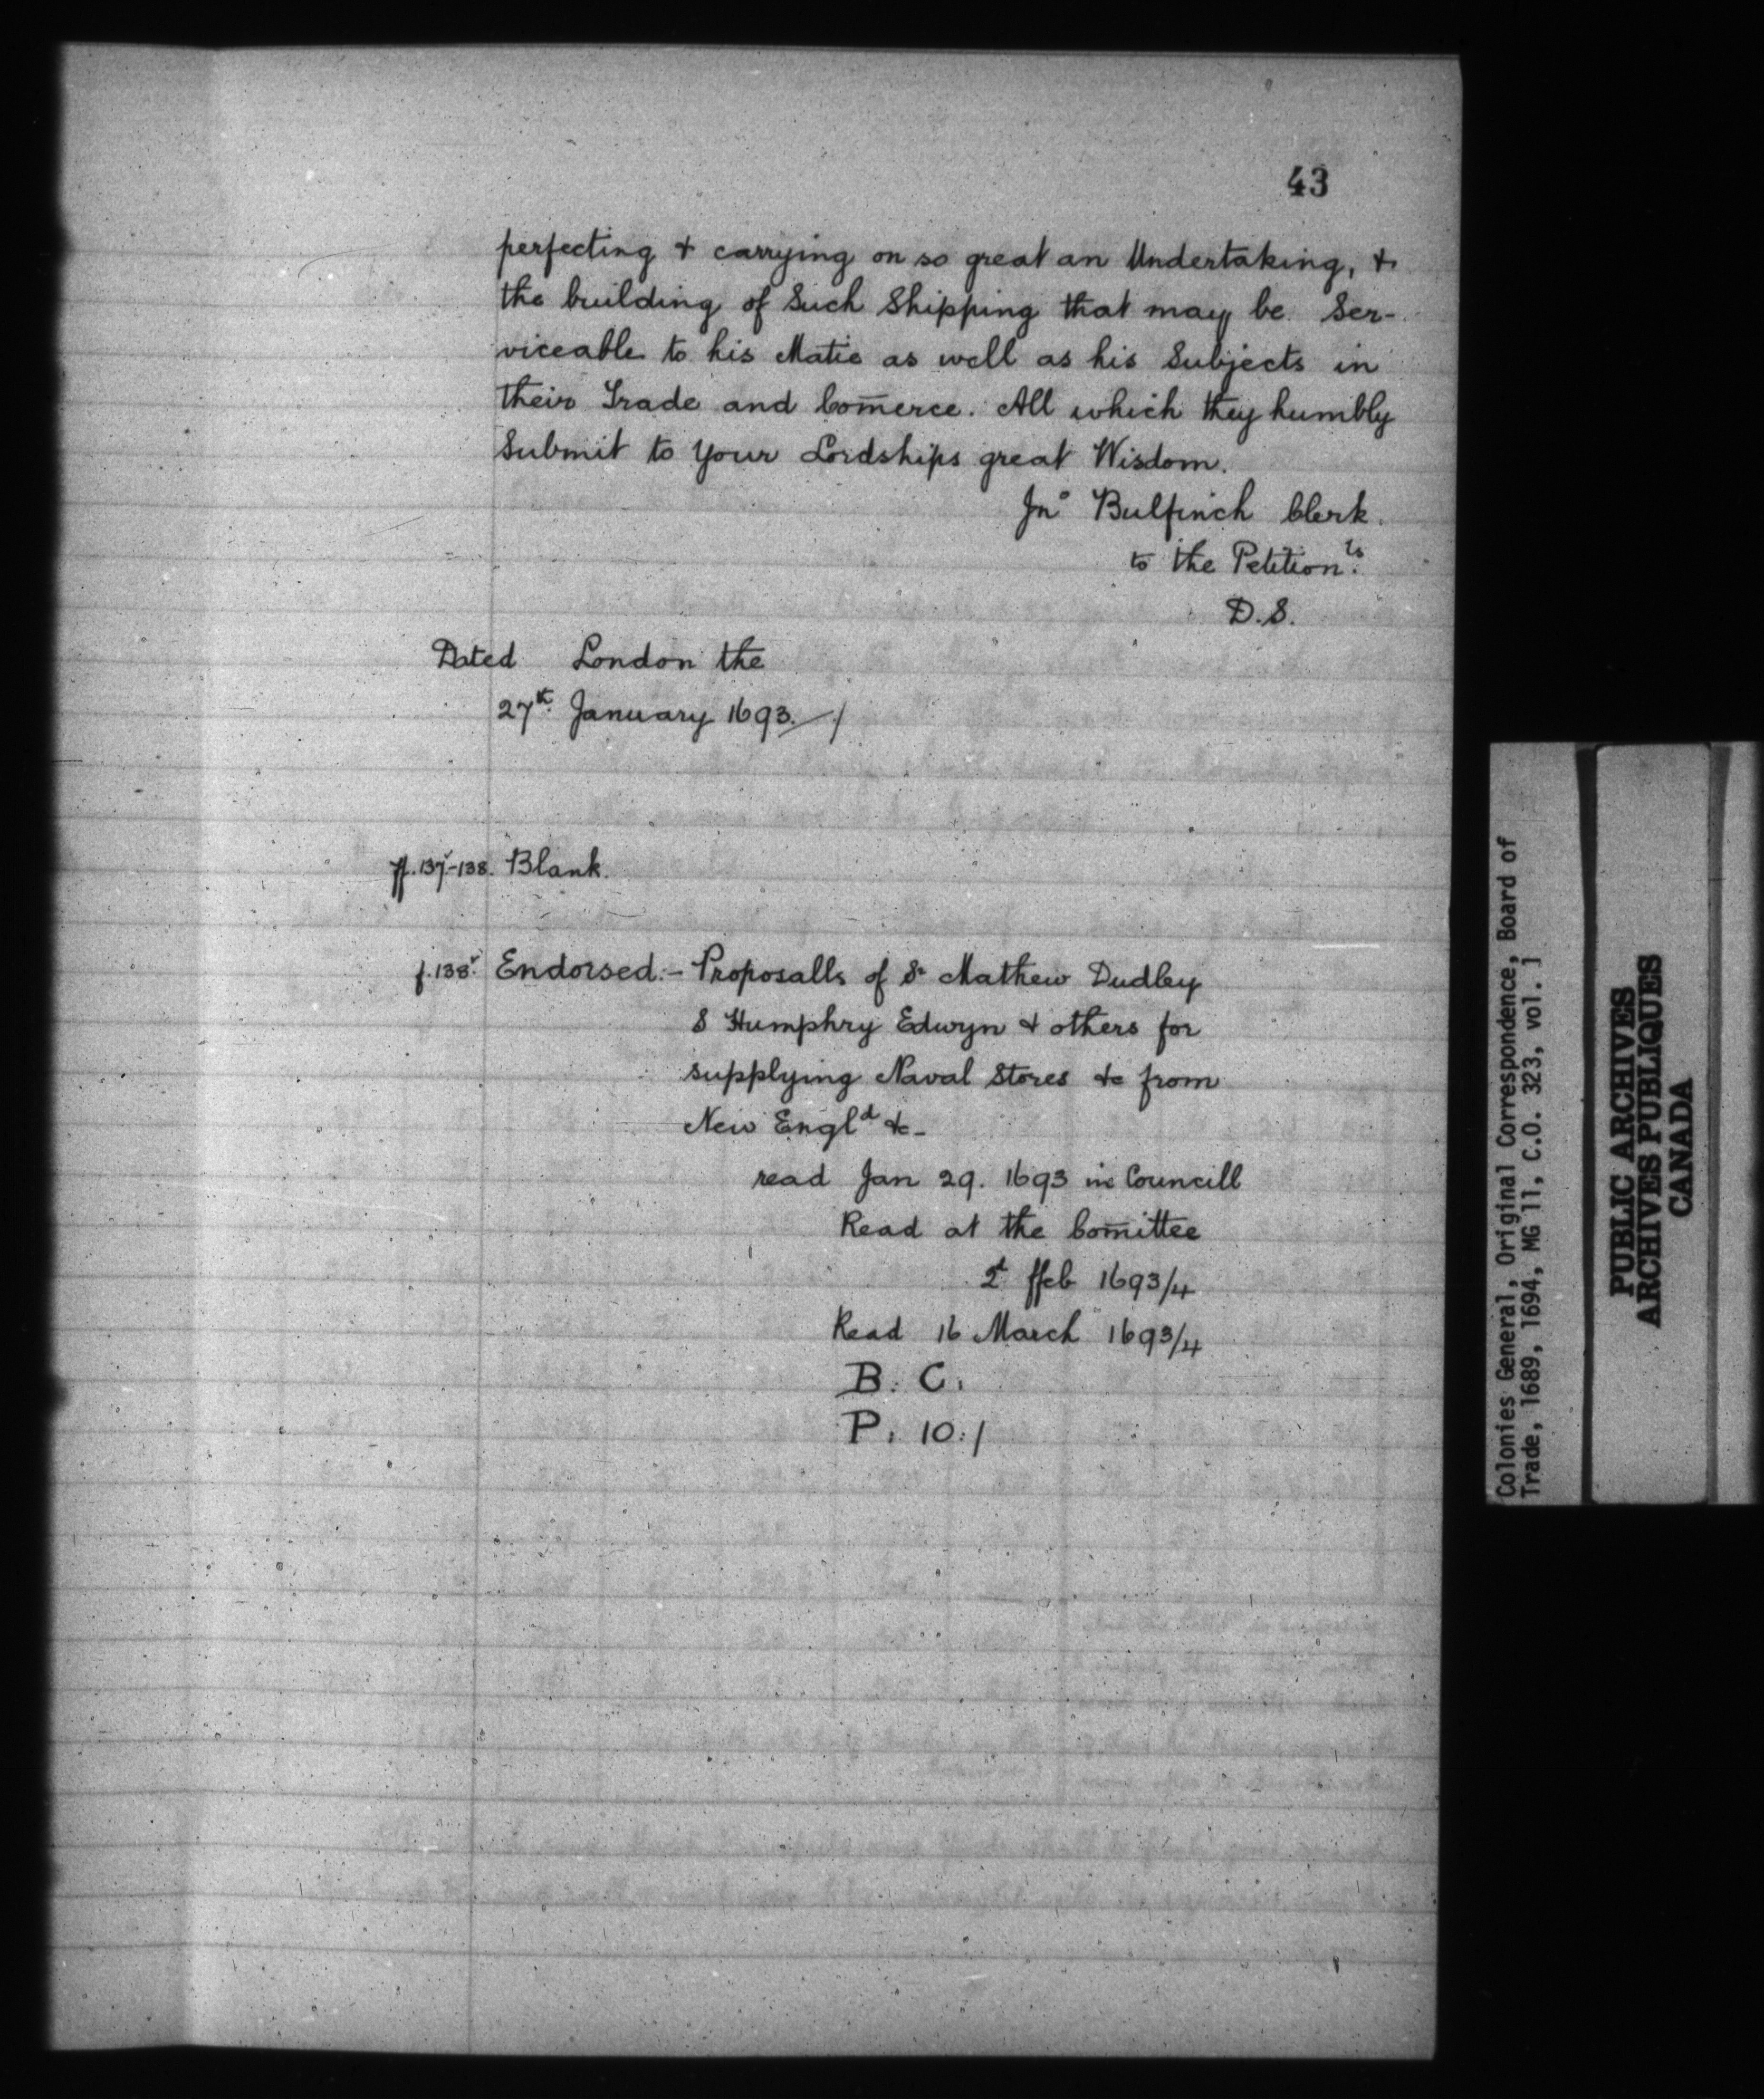 43
perfecting & carrying on so great an Undertaking, &
the building of Such Shipping that may be Ser-
viceable to his Matie as well as his Subjects in
their Trade and Com̄erce. All which they humbly
Submit to Your Lordships great Wisdom.
Jnº Bulfinch Clerk.
to the Petitionʳˢ.
D.S.
Dated London the
27th January 1693./
ff. 137ᵛ-138. Blank.
f. 138ᵛ. Endorsed:- Proposalls of Sʳ Mathew Dudley
S Humphry Edwyn & others for
supplying Naval Stores &c from
New Englᵈ &c-
read Jan 29. 1693 in Councill
Read at the Com̄ittee
2ᵈ ffeb 1693/4
Read 16 March 1693/4
B. C.
P. 10./
Colonies General, Original Correspondence, Board of
Trade, 1689, 1694, MG 11, C.O. 323, vol. 1
PUBLIC ARCHIVES
ARCHIVES PUBLIQUES
CANADA